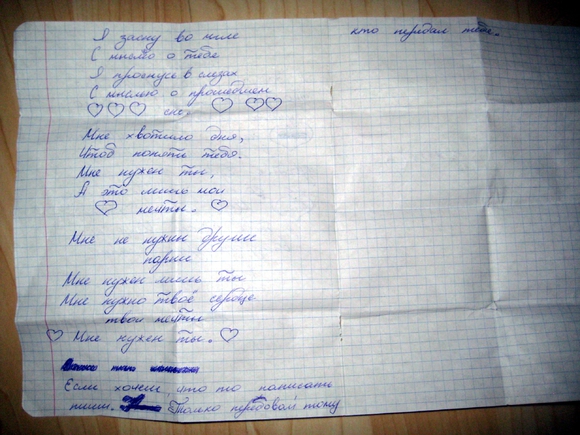 Я засну во мгле
С мыслю о тебе
Я проснусь в слезах
С мыслею о прошедшем
сне.
Мне хватило дня,
Чтоб понять тебя.
Мне нужен ты,
А это лишь мои
мечты.
Мне не нужны другие
парни
Мне нужен лишь ты
Мне нужно твоё сердце
твои мечты
Мне нужен ты.
Если хочеш что то написать
пиши. Только передавай тому
кто передал тебе.